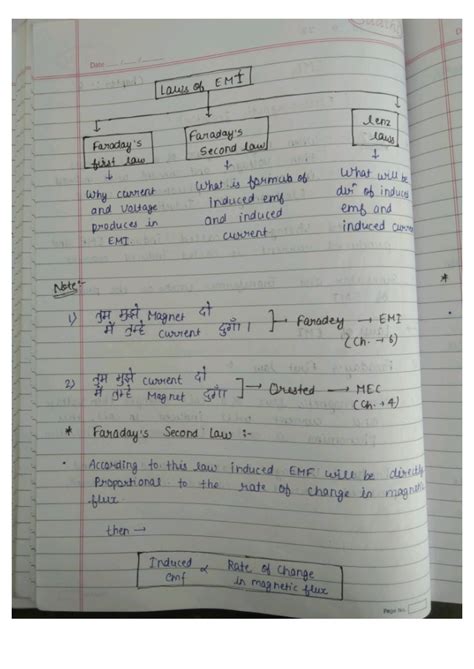 Date
Laws of EMI
Faraday's first law
Faraday's Second law
lenz laws
Why current and voltage produces in EMI.
What is formula of induced emf and induced current
What will be dirⁿ of induced emf and induced current
Note:-
1) तुम मुझे Magnet दो
में तुम्हे current दुगाँ।
→ Faradey → EMI
(Ch. → 6)
2) तुम मुझे current दो
में तुम्हे Magnet दुगाँ
→ Orested → MEC
(Ch. → 4)
* Faraday's Second Law :-
• According to this law induced EMF will be directly
Proportional to the rate of change in magnetic
flux.
then →
Induced emf ∝ Rate of Change in magnetic flux
Page No.